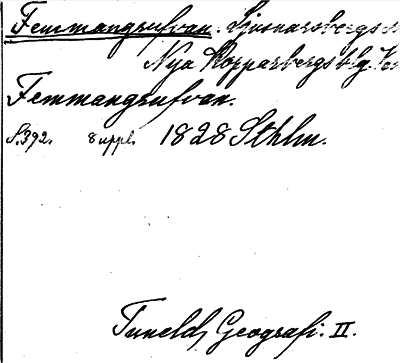 Femmangrufvan. Ljusnarsbergs s
Nya Kopparbergs blg.
Femmangrufvan.
S. 392. 8 uppl. 1828 Sthlm.
Tunelds Geografi. II.